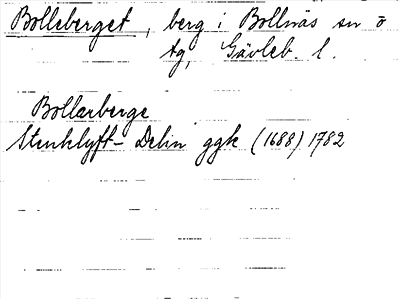 Bolleberget, berg i Bollnäs sn o
tg, Gävleb. l.
Bollarberge
Stenklyft- Delin ggk (1688) 1782